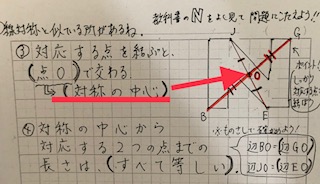 線対称と似ている所があるね。
教科書のNをよーく見て問題にこたえよう!!
③対応する点を結ぶと、
(点O)で交わる
↳(対称の中心)
④対称の中心から
対応する2つの点までの
長さは、(すべて等しい)。
J
G
O
B
E
ポイント!
しっかり
対応する点を
結ぼう!
※ものさしで確かめよう!
辺BO=(辺GO)
辺JO=(辺EO)